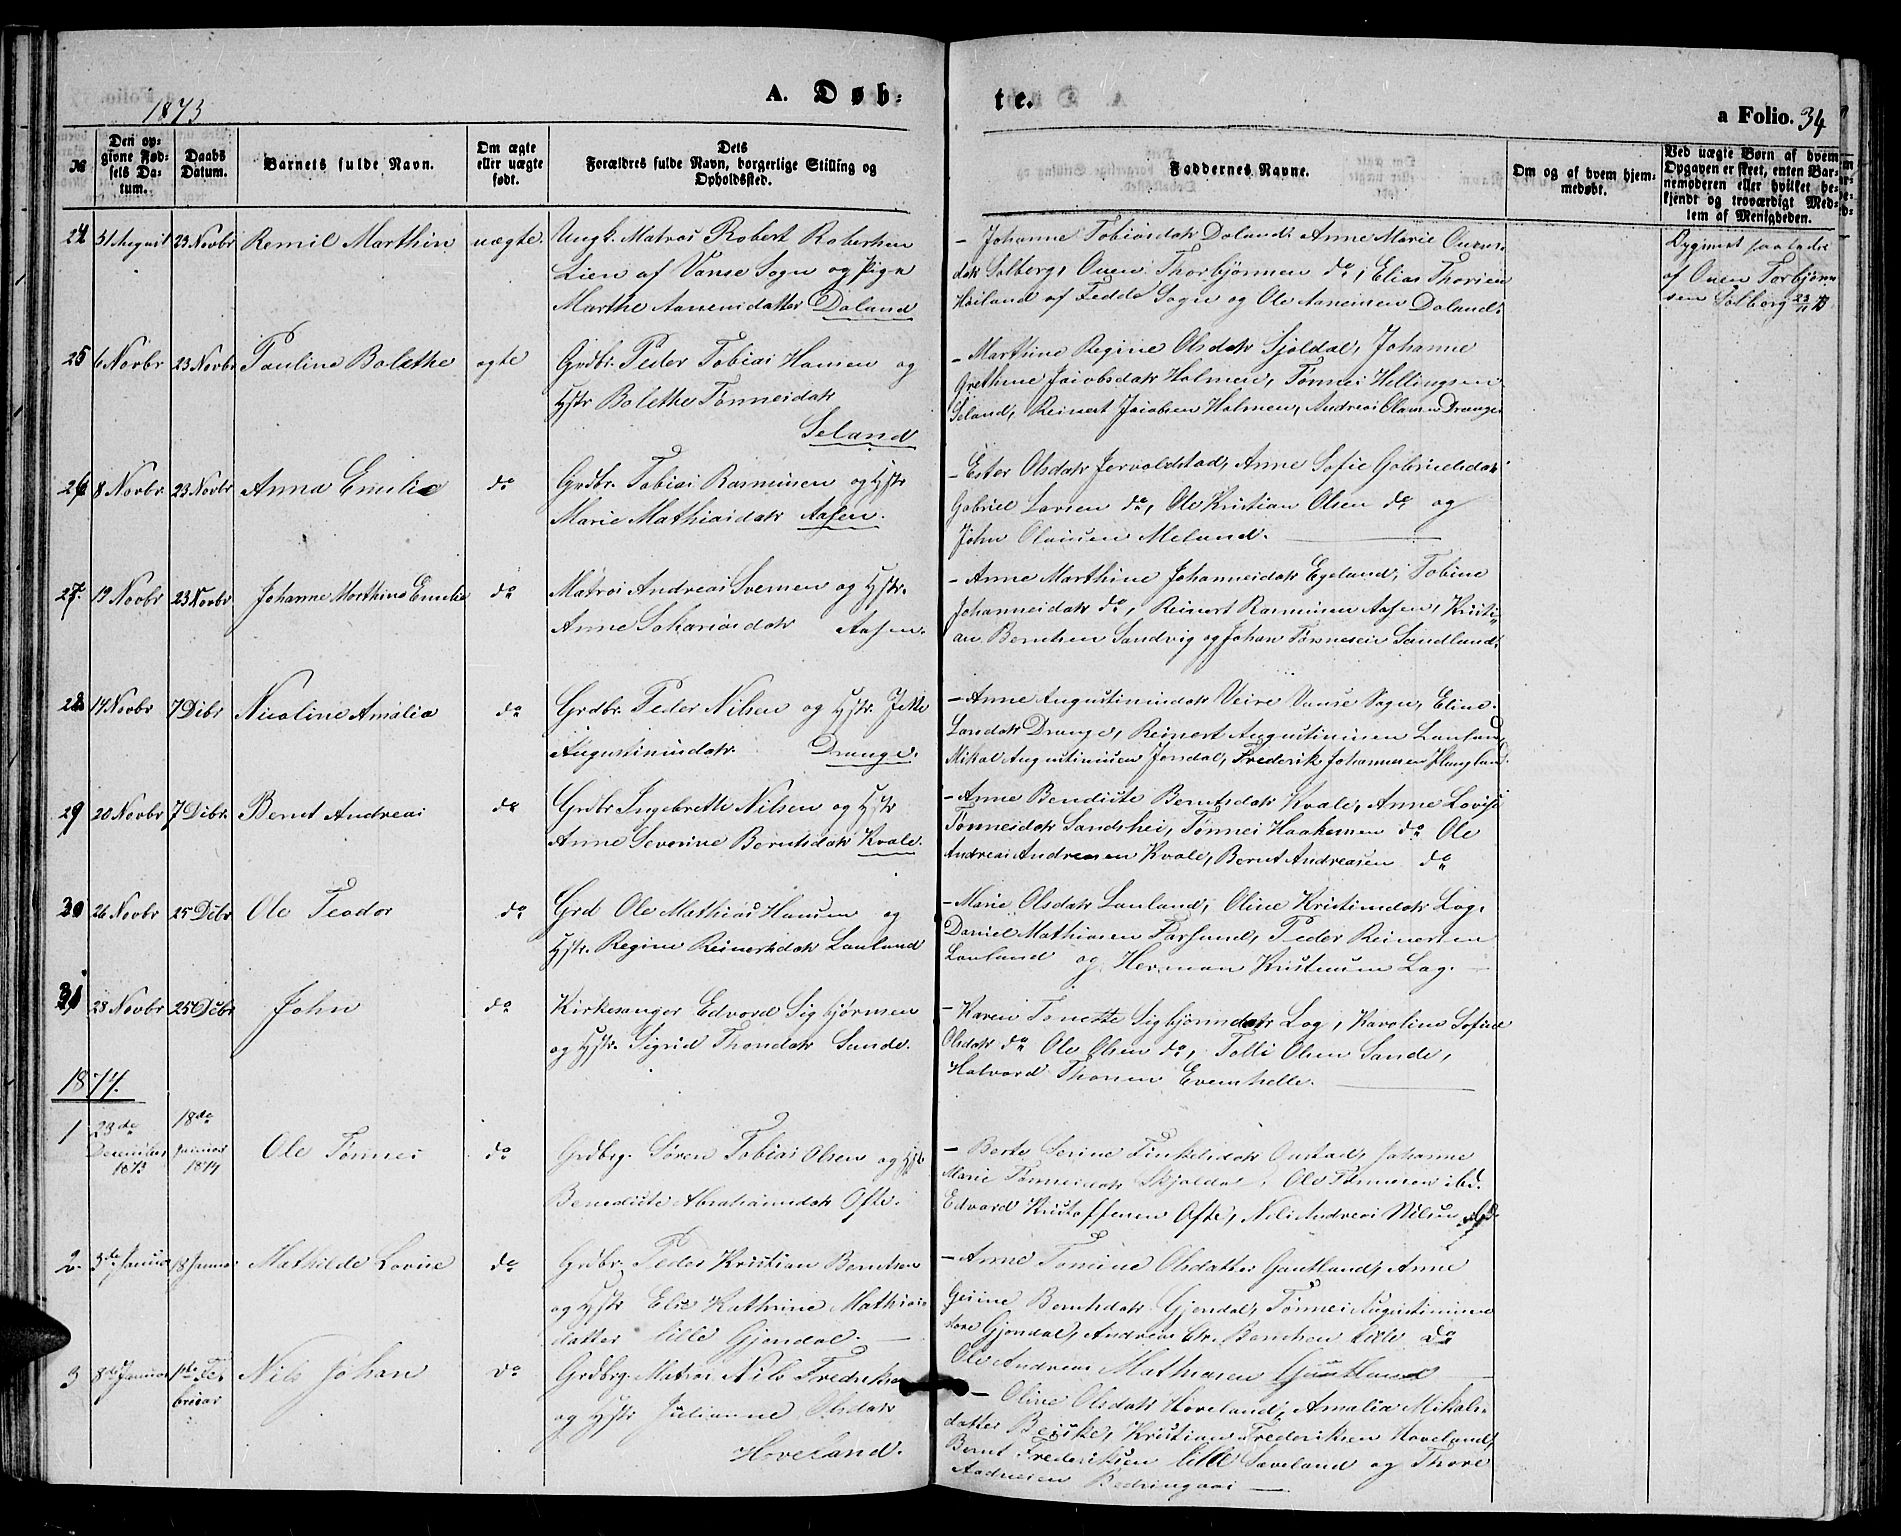 1873
A. Døb-
te.
a Folio. 34
№
Den op-
givne Fød-
sels Da-
tum.
Daabs
Datum.
Barnets fulde Navn.
Om ægte
eller uægte
født.
Dets
Forældres fulde Navn, borgerlige Stilling og
Opholdssted.
Faddernes Navne.
Om og af hvem hjem-
medøbt.
Ved uægte Børn af hvem
Opgaven er skeet, enten Bar-
nemoderen eller hvilket be-
kjendt og troværdigt Med-
lem af Menigheden.
24 31 August 23 Novbr Remil Marthin uægte. Ungk. Matros Robert Robertsen
Lien af Vanse Sogn og Pige
Marthe Aanensdatter Doland
- Johanne Tobiasdatr Doland, Anne Marie Ouens-
datr Solberg, Ouen Thorbjørnsen do, Elias Thorsen
Høiland af Fedde Sogn og Ole Aanensen Doland.
af Ouen Torbjørn
sen Solberg 23/11 73
25 6 Novbr 23 Novbr Pauline Bolethe ægte Grdbr. Peder Tobias Hansen og
Hstr Bolethe Tønnesdatr
Seland
- Marthine Regine Olsdatr Sjøldal, Johanne
Grethine Jacobsdatr Holmen, Tønnes Hellingsen
Seland, Reinert Jacobsen Holmen, Andreas Olausen Drange
26 8 Novbr 23 Novbr Anna Emilie do Grdbr. Tobias Rasmusen og Hstr
Marie Mathiasdatr Aasen.
- Ester Olsdatr Jervoldstad, Anne Sofie Gabrielsdatr
Gabriel Larsen do, Ole Kristian Olsen do og
John Olausen Meland.
27. 19 Novbr 23 Novbr Johanne Marthine Emilie do Matros Andreas Svensen og Hstr.
Anne Sakariasdatr Aasen.
- Anne Marthine Johannesdatr Egeland, Tobine
Johannesdatr do, Reinert Rasmusen Aasen, Kristi-
an Berntsen Sandvig og Johan Tønnesen Sandland.
28 14 Novbr 7 Dibr Nicoline Amalia do Grdbr. Peder Nilsen og Hstr. Jette
Augustinusdatr. Drange.
- Anne Augustinusdatr Veire Vanse Sogn, Eline
Larsdatr Drange, Reinert Augustinusen Lauland
Mikal Augustinusen Jerdal, Frederik Johannesen
29 20 Novbr 7 Dibr. Bernt Andreas do Grdbr Ingebreth Nilsen og Hstr
Anne Severine Berntsdatr Kvale.
- Anne Bendicte Berntsdatr Kvale, Anne Lovise
Tønnesdatr Sandshei, Tønnes Haakensen do Ole
Andreas Andreasen Kvale, Bernt Andreasen do
30 26 Novbr 25 Dibr Ole Teodor do Grd Ole Mathias Hansen og
Hstr. Regine Reinertsdatr Lauland
- Marie Olsdatr Lauland, Oline Kristensdatr Log,
Daniel Mathiasen Farsund, Peder Reinertsen
Lauland og Herman Kristensen Log.
31 28 Novbr 25 Dibr John do Kirkesanger Edvard Sigbjørnsen
og Hstr. Sigrid Thorsdatr Sande.
- Karen Tonette Sigbjørnsdatr Log, Karoline Sofie
Olsdatr do Ole Olsen do, Tolli Olsen Sande,
Halvord Thorsen Evenshelle.
1874.
1 23de December 1873 18de Januar 1874 Ole Tønnes do Grdbrg. Søren Tobias Olsen og Hstr
Benedicte Abrahamsdatr Ofte.
- Berte Serine Finkelsdatr Oustad, Johanne
Marie Tønnesdatr Skjoldal, Ole Tønnesen ibd.
Edvard Kristoffersen Ofte, Nils Andreas Nilsen ibd.
2. 3de Januar 18 Januar Mathilde Lovise do Grdbr. Peder Kristian Berntsen
og Hstr Elis Kathrine Mathias-
datter lille Gjendal.
- Anne Tomine Olsdatter Gautland, Anne
Gesine Berntsdatr Gjendal, Tønnes Augustinusen
store Gjendal, Andreas Chr. Berntsen lille do
Ole Andreas Mathiasen Gautland
3 8de Januar 1ste Fe-
bruar Nils Johan do Grdbrg. Matros Nils Fredriksen
og Hstr Julianne Olsdatr
Hoveland.
- Oline Olsdatr Hoveland, Amalia Mikals-
datter Beiske, Kristian Frederiksen Hoveland,
Bernt Frederiksen lille Saveland og Thore
Andreasen